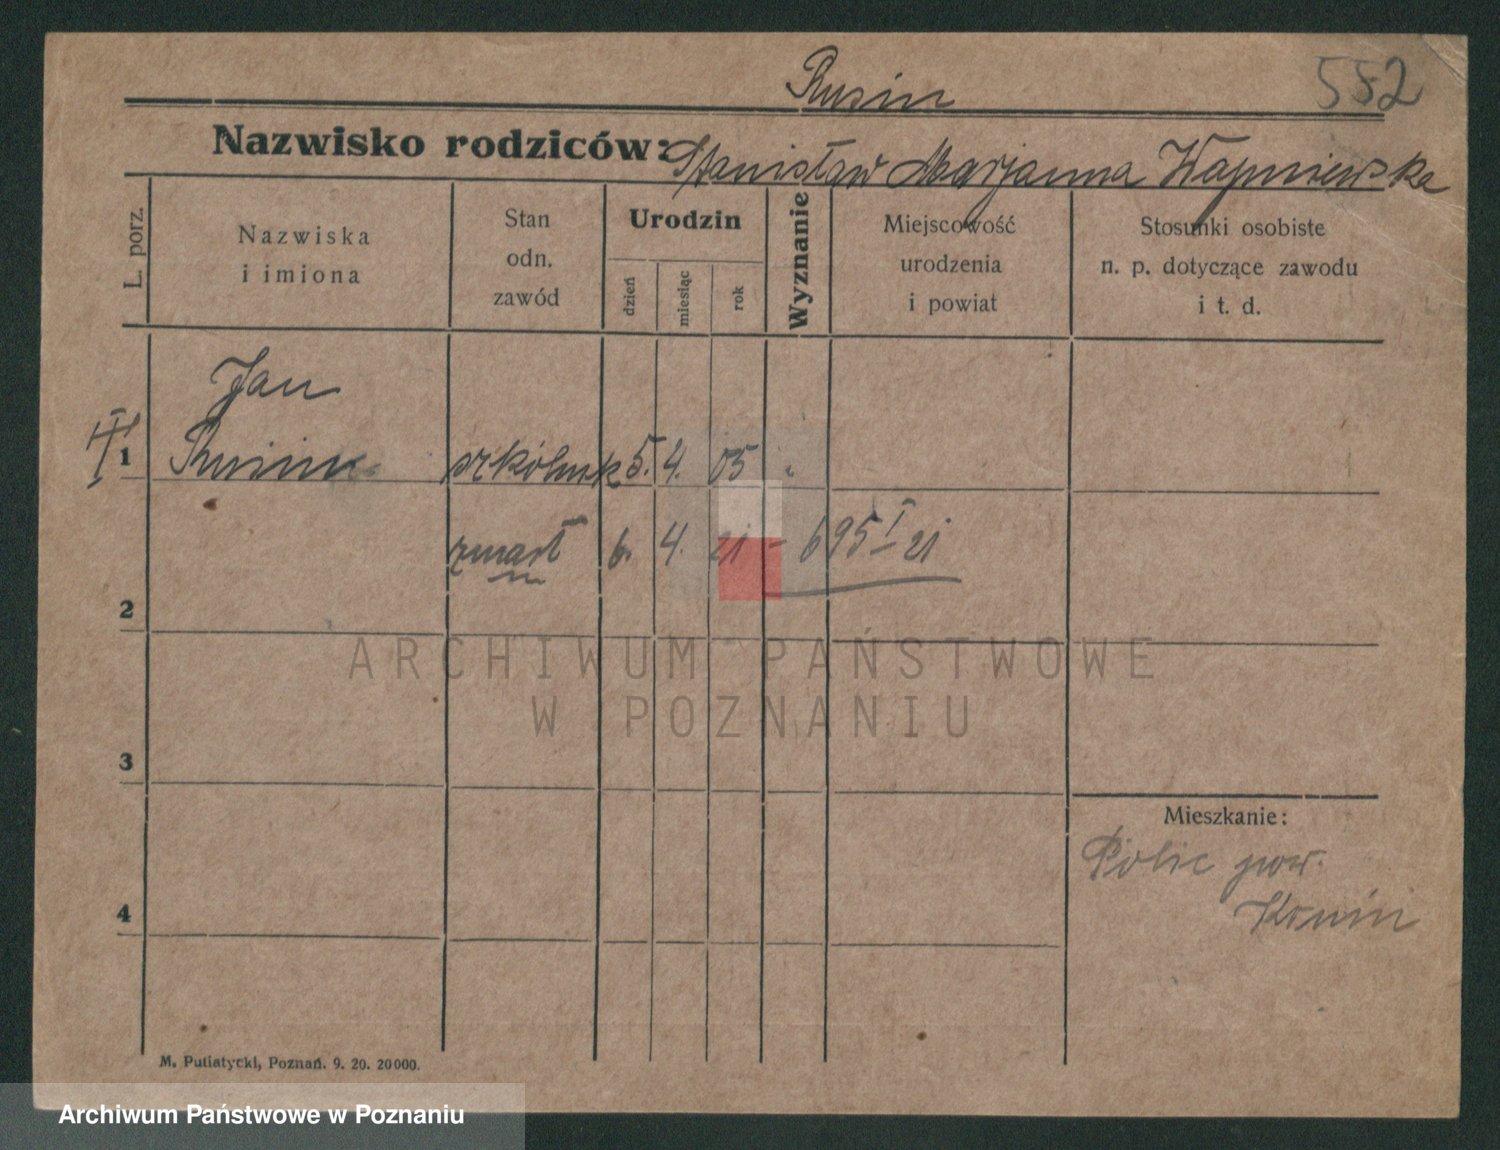 Rusin
552
Nazwisko rodziców: Stanisław Marjanna
L. porz.
Nazwiska i imiona
Stan odn. zawód
Urodzin
dzień
miesiąc
rok
Wyznanie
Miejscowość urodzenia i powiat
Stosunki osobiste n. p. dotyczące zawodu i t. d.
Jan
1 Rusin szkólnik 5. 4. 05
zmarł 6. 4. 21 - 695 I 21
2
3
4
Mieszkanie:
Polic pow.
Konin
M. Putiatycki, Poznań. 9. 20. 20000.
ARCHIWUM PAŃSTWOWE
W POZNANIU
Archiwum Państwowe w Poznaniu